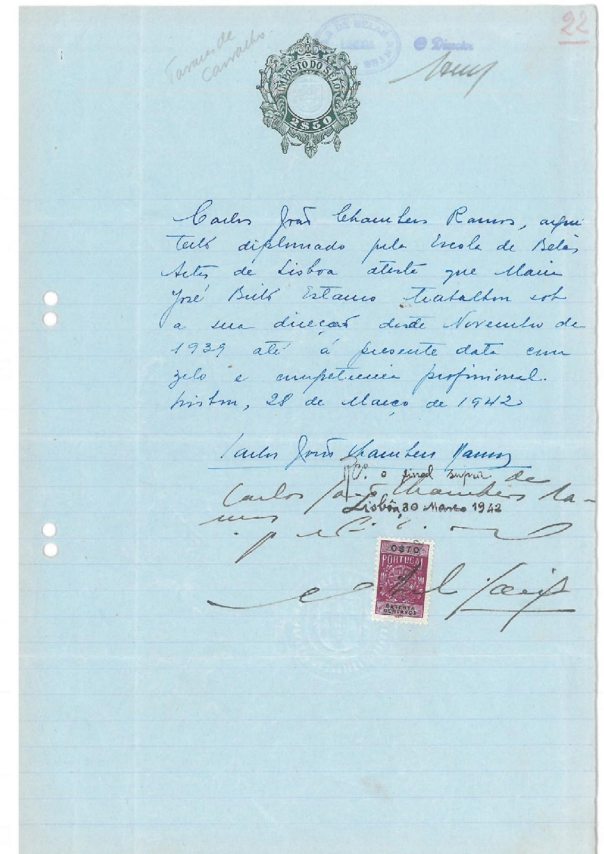 22
Tavares de
Carvalho
ESCOLA DE BELAS ARTES
LISBOA
O Director
IMPOSTO DO SELO
2$50
Carlos João Chambers Ramos, arqui
tecto diplomado pela Escola de Belas
Artes de Lisboa atesta que Maria
José Brito Estanco trabalhou sob
a sua direcção desde Novembro de
1939 até á presente data com
zelo e competencia profissional.
Lisboa, 28 de Março de 1942
Carlos João Chambers Ramos
o sinal supra de
Carlos João Chambers Ra-
mos
Lisboa, 30 Março 1942
PORTUGAL